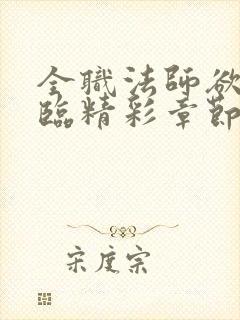 全職法師欲
臨精彩章節
宋度宗